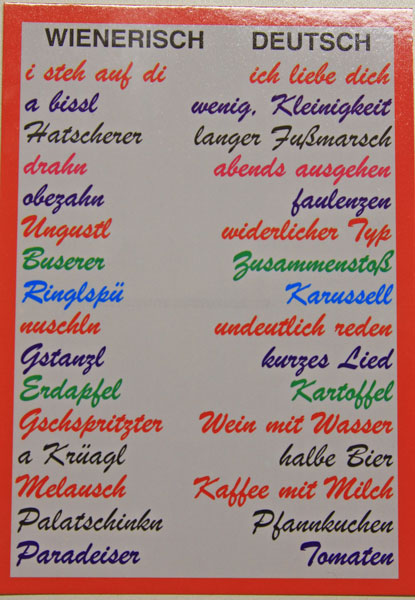 WIENERISCH DEUTSCH
i steh auf di ich liebe dich
a bissl wenig, Kleinigkeit
Hatscherer langer Fußmarsch
drahn abends ausgehen
obezahn faulenzen
Ungustl widerlicher Typ
Buserer Zusammenstoß
Ringlspü Karussell
nuschln undeutlich reden
Gstanzl kurzes Lied
Erdapfel Kartoffel
Gschspritzter Wein mit Wasser
a Krüagl halbe Bier
Melausch Kaffee mit Milch
Palatschinkn Pfannkuchen
Paradeiser Tomaten